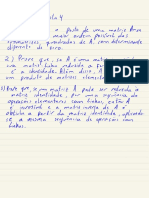 ula 4
o posto de uma matriz A mxn
maior ordem possível das
quadradas de A, com determinante
diferente de zero.
2.) Prove que, se A é uma matriz
matriz linha reduzida a
é a identidade. Além disso, A
um produto de matrizes elementares
3) Prove que, se uma matriz A pode ser reduzida à
matriz identidade, por uma sequência de
operações elementares com linhas, então A
é inversível e a matriz inversa de A é
obtida a partir da matriz identidade, aplicando-
se a mesma sequência de operações com
linhas.